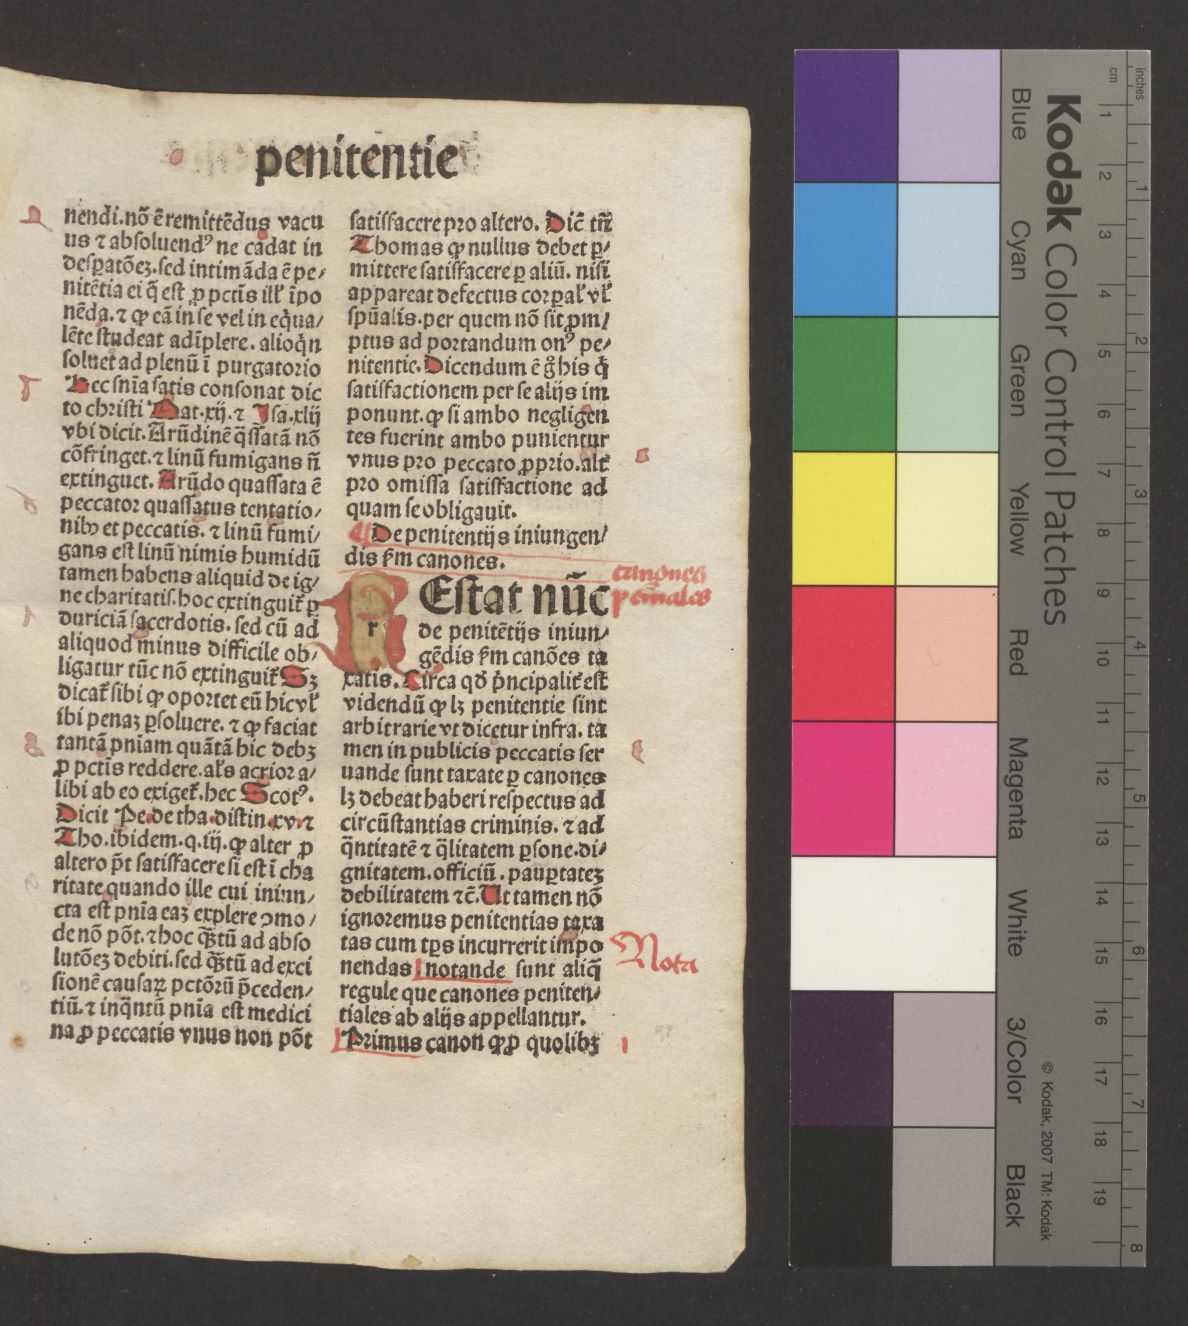 penitentie
nendi. nõ ẽ remittẽdus vacu
us ⁊ absoluendꝰ ne cadat in
desꝑatõeꝫ. sed intimãda ẽ pe/
nitẽtia ei q̃ est ꝓ pctĩs ill' ĩpo
nẽda. ⁊ ꝙ eã in se vel in eq̃ua/
lẽte studeat adĩplere. alioq̃n
soluet ad plenũ ĩ purgatorio
Hec snĩa satis consonat dic
to christi Mat. xij. ⁊ Isa. xlij
vbi dicit. Arũdinẽ q̃ssatã nõ
cõfringet. ⁊ linũ fumigans ñ
extinguet. Arũdo quassata ẽ
peccator quassatus tentatio/
nibꝰ et peccatis. ⁊ linũ fumi/
gans est linũ nimis humidũ
tamen habens aliquid de ig/
ne charitatis. hoc extinguit̃ ꝑ
duriciã sacerdotis. sed cũ ad
aliquod minus difficile ob/
ligatur tũc nõ extinguit̃ Sꝫ
dicat̃ sibi ꝙ oportet eũ hic vl'
ibi penaꝫ ꝑsoluere. ⁊ ꝙ faciat
tantã pniam quãtã hic debꝫ
ꝓ pctĩs reddere. al's acrior a/
libi ab eo exiget̃. hec Scotꝰ.
Dicit Pe. de tha. distin. xv. ⁊
Tho. ibidem. q. iij. ꝙ alter ꝓ
altero põt satisfacere si est ĩ cha
ritate quando ille cui iniun/
cta est pnĩa eaꝫ explere ꝯmo/
de nõ põt. ⁊ hoc q̃ʒtũ ad abso
lutõeꝫ debiti. sed q̃ʒtũ ad exci
sionẽ causaꝝ pctõrũ p̃ceden/
tiũ. ⁊ inq̃ntũ pnĩa est medici
na ꝓ peccatis vnus non põt
satisfacere pro altero. Dic̃ tñ
Thomas ꝙ nullus debet ꝑ/
mittere satisfacere ꝑ aliũ. nisi
appareat defectus corpal' vl'
spũalis. per quem nõ sit ꝓm/
ptus ad portandum onꝰ pe/
nitentie. Dicendum ẽ g̊ his q̇
satisfactionem per se alijs im
ponunt. ꝙ si ambo negligen
tes fuerint ambo punientur
vnus pro peccato ꝓprio. alt̃
pro omissa satisfactione ad
quam se obligauit.
¶ De penitentijs iniungen/
dis ẜm canones.
canones
penales
r
Estat nũc
de penitẽtijs iniun/
gẽdis ẜm canões ta
xatis. Circa qd̃ p̃ncipalit̃ est
videndũ ꝙ lꝫ penitentie sint
arbitrarie vt dicetur infra. ta
men in publicis peccatis ser
uande sunt taxate ꝑ canones
lꝫ debeat haberi respectus ad
circũstantias criminis. ⁊ ad
q̃ntitatẽ ⁊ q̃litatem ꝑsone. di/
gnitatem. officiũ. pauꝑtateꝫ
debilitatem ⁊c̃. Ut tamen nõ
ignoremus penitentias taxa
tas cum tꝑs incurrerit impo
nendas notande sunt aliq̃
Nota
regule que canones peniten/
tiales ab alijs appellantur.
Primus canon ꝙ ꝓ quolibꝫ
1
inches
cm
1 2 3 4 5 6 7 8 9 10 11 12 13 14 15 16 17 18 19
1 2 3 4 5 6 7 8
Kodak Color Control Patches
© Kodak, 2007 TM: Kodak
Blue
Cyan
Green
Yellow
Red
Magenta
White
3/Color
Black